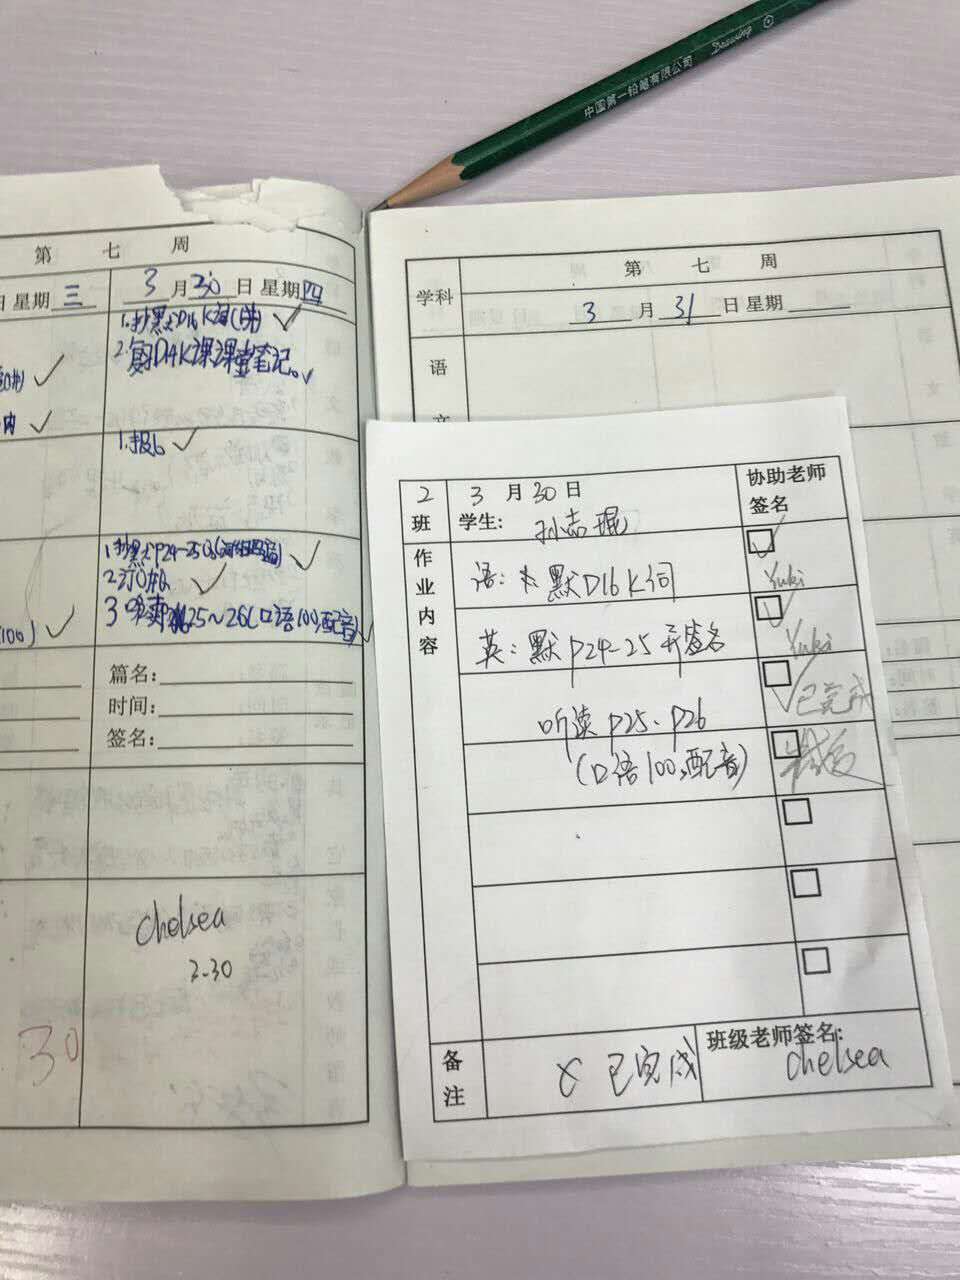 Drawing
中国第一铅笔有限公司
第 七 周
日 星期 三
3 月 30 日 星期四
1.抄默D16 K词
2. D4K课课堂笔记。
内
1.报6
1.抄默P24-25
2.
100)
3 25~26(口语100,配音)
篇名:
时间:
签名:
chelsea
3.30
30
学科
第 七 周
3 月 31 日 星期
语
文
2 班
3 月 30 日
学生: 孙
协助老师签名
作业内容
语: 默D16 K词
Yuki
英: 默P24-25 并签名
Yuki
听读 P25、P26
已完成
(口语100,配音)
备注
已完成
班级老师签名:
chelsea